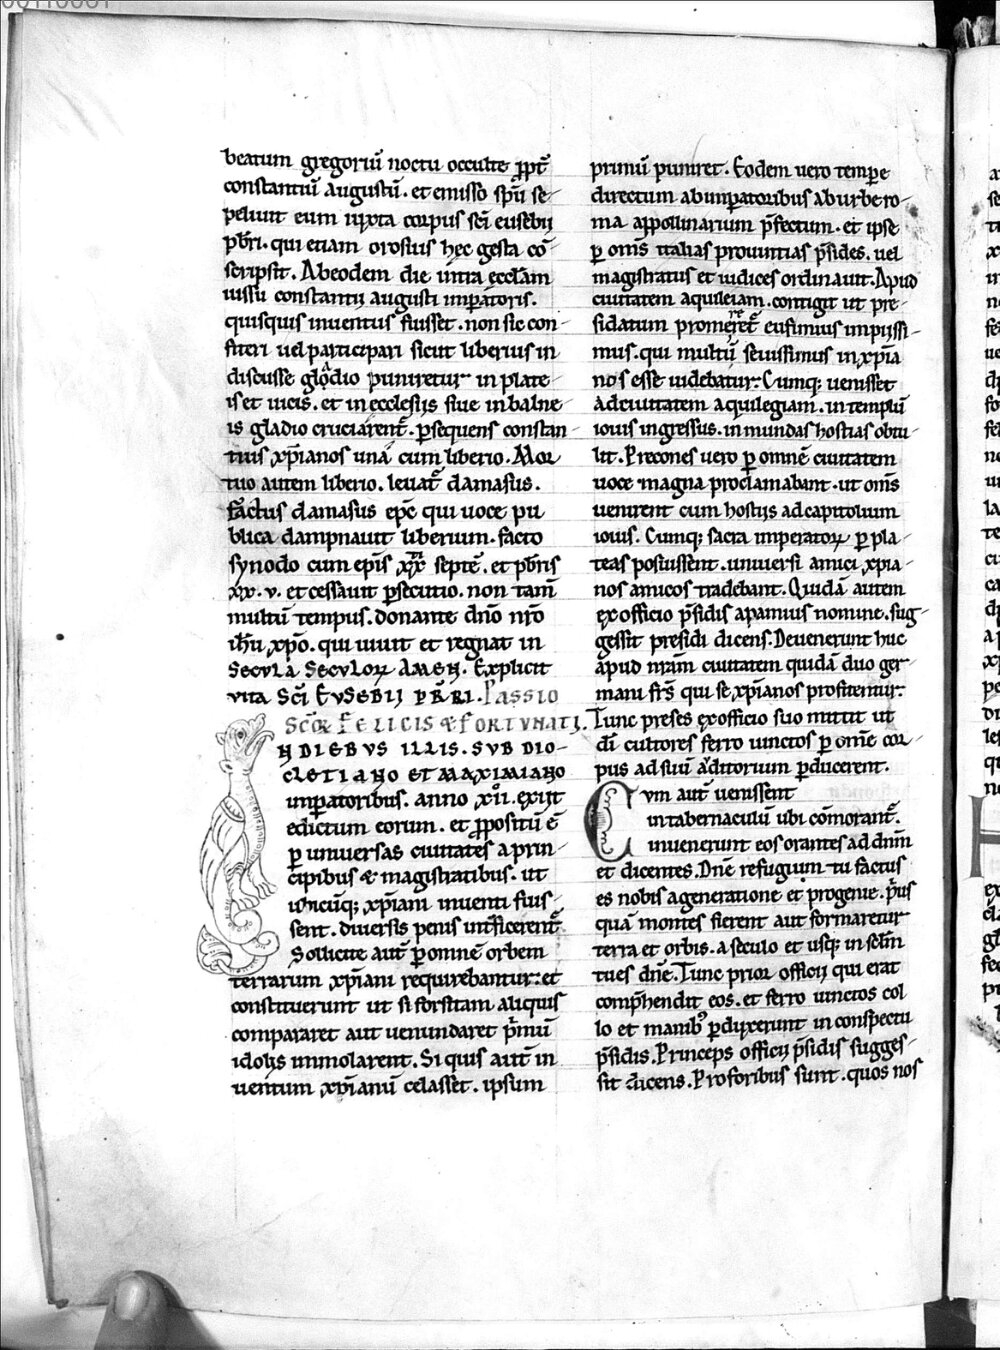 beatum gregoriū noctu occulte ꝓpt̄
constantiū augustū. et emisso spū se-
peliuit eum iuxta corpus sc̄i eusebij
p̄bri. qui etiam orosius hęc gesta cō
scripsit. Ab eodem die uita ecclām
iussu constantij augusti imꝑatoris.
quisquis inuentus fuisset. non sic con-
fiteri uel participari sicut liberius in
discusse gladio puniretur in plate-
is et uicis. et in ecclesijs siue in balne-
is gladio cruciarent̄. ꝑsequens constan-
tius xp̄ianos una cum liberio. Mor
tuo autem liberio. leuat̄ damasus.
factus damasus ep̄c qui uoce pu
blica dampnauit liberium. facto
synodo cum ep̄is xxx septē. et p̄bris
xx. v. et cessauit ꝑsecutio. non tam̄
multū tempus. donante dn̄o nr̄o
ih̄u xp̄o. qui uiuit et regnat in
secula seculoꝝ amen. Explicit
vita sc̄i eusebij p̄bri. Passio
sc̄oꝝ felicis & fortunati.
n diebus illis. sub dio-
cletiano et maximiano
imꝑatoribus. anno xii. exiit
edictum eorum. et ꝓpositū ē
ꝑ uniuersas ciuitates a prin-
cipibus & magistratibus. ut
ubicūq; xp̄iani inuenti fuis-
sent. diuersis penis int̄ficerent̄.
Sollicite aut̄ ꝑ omnē orbem
terrarum xp̄iani requirebantur. et
constituerunt ut si forsitam aliquis
compararet aut uenundaret p̄mū
idolis immolarent. Si quis aut̄ in
uentum xp̄ianū celasset. ipsum
primū puniret. Eodem uero tempe
directum ab imꝑatoribus ab urbe ro-
ma appollinarium p̄fectum. et ipse
ꝑ om̄s italias prouintias p̄sides. uel
magistratus et iudices ordinauit. Apud
ciuitatem aquileiam. contigit ut pre-
sidatum promeret̄ eufimius impijssi-
mus. qui multū seuissimus in xp̄ia
nos esse uidebatur. Cumq; uenisset
ad ciuitatem aquilegiam. in templū
iouis ingressus. inmundas hostias obtu-
lit. Precones uero ꝑ omnē ciuitatem
uoce magna proclamabant. ut om̄s
uenirent cum hostijs ad capitolium
iouis. Cumq; sacra imperatoꝝ ꝑ pla-
teas posuissent. uniuersi amici xp̄ia-
nos amicos tradebant. Quidā autem
ex officio p̄sidis apamius nomine. sug-
gessit presidi dicens. Deuenerunt huc
apud nr̄am ciuitatem quidā duo ger-
mani frs̄ qui se xp̄ianos profitentur.
Tunc preses ex officio suo mittit ut
d̄i cultores ferro uinctos ꝑ om̄e cor-
pus ad suū aditorium ꝑducerent.
Cvm aut̄ uenissent
in tabernaculū ubi cōmorant̄.
inuenerunt eos orantes ad dn̄m
et dicentes. Dn̄e refugium tu factus
es nobis a generatione et progenie. p̄us
quā montes fierent aut formaretur
terra et orbis. a seculo et usq; in sc̄lm
tu es dn̄e. Tunc prior officij qui erat
comp̄hendit eos. et ferro uinctos col
lo et manib; ꝑduxerunt in conspectu
p̄sidis. Princeps officij p̄sidis sugges-
sit dicens. Pro foribus sunt. quos nos